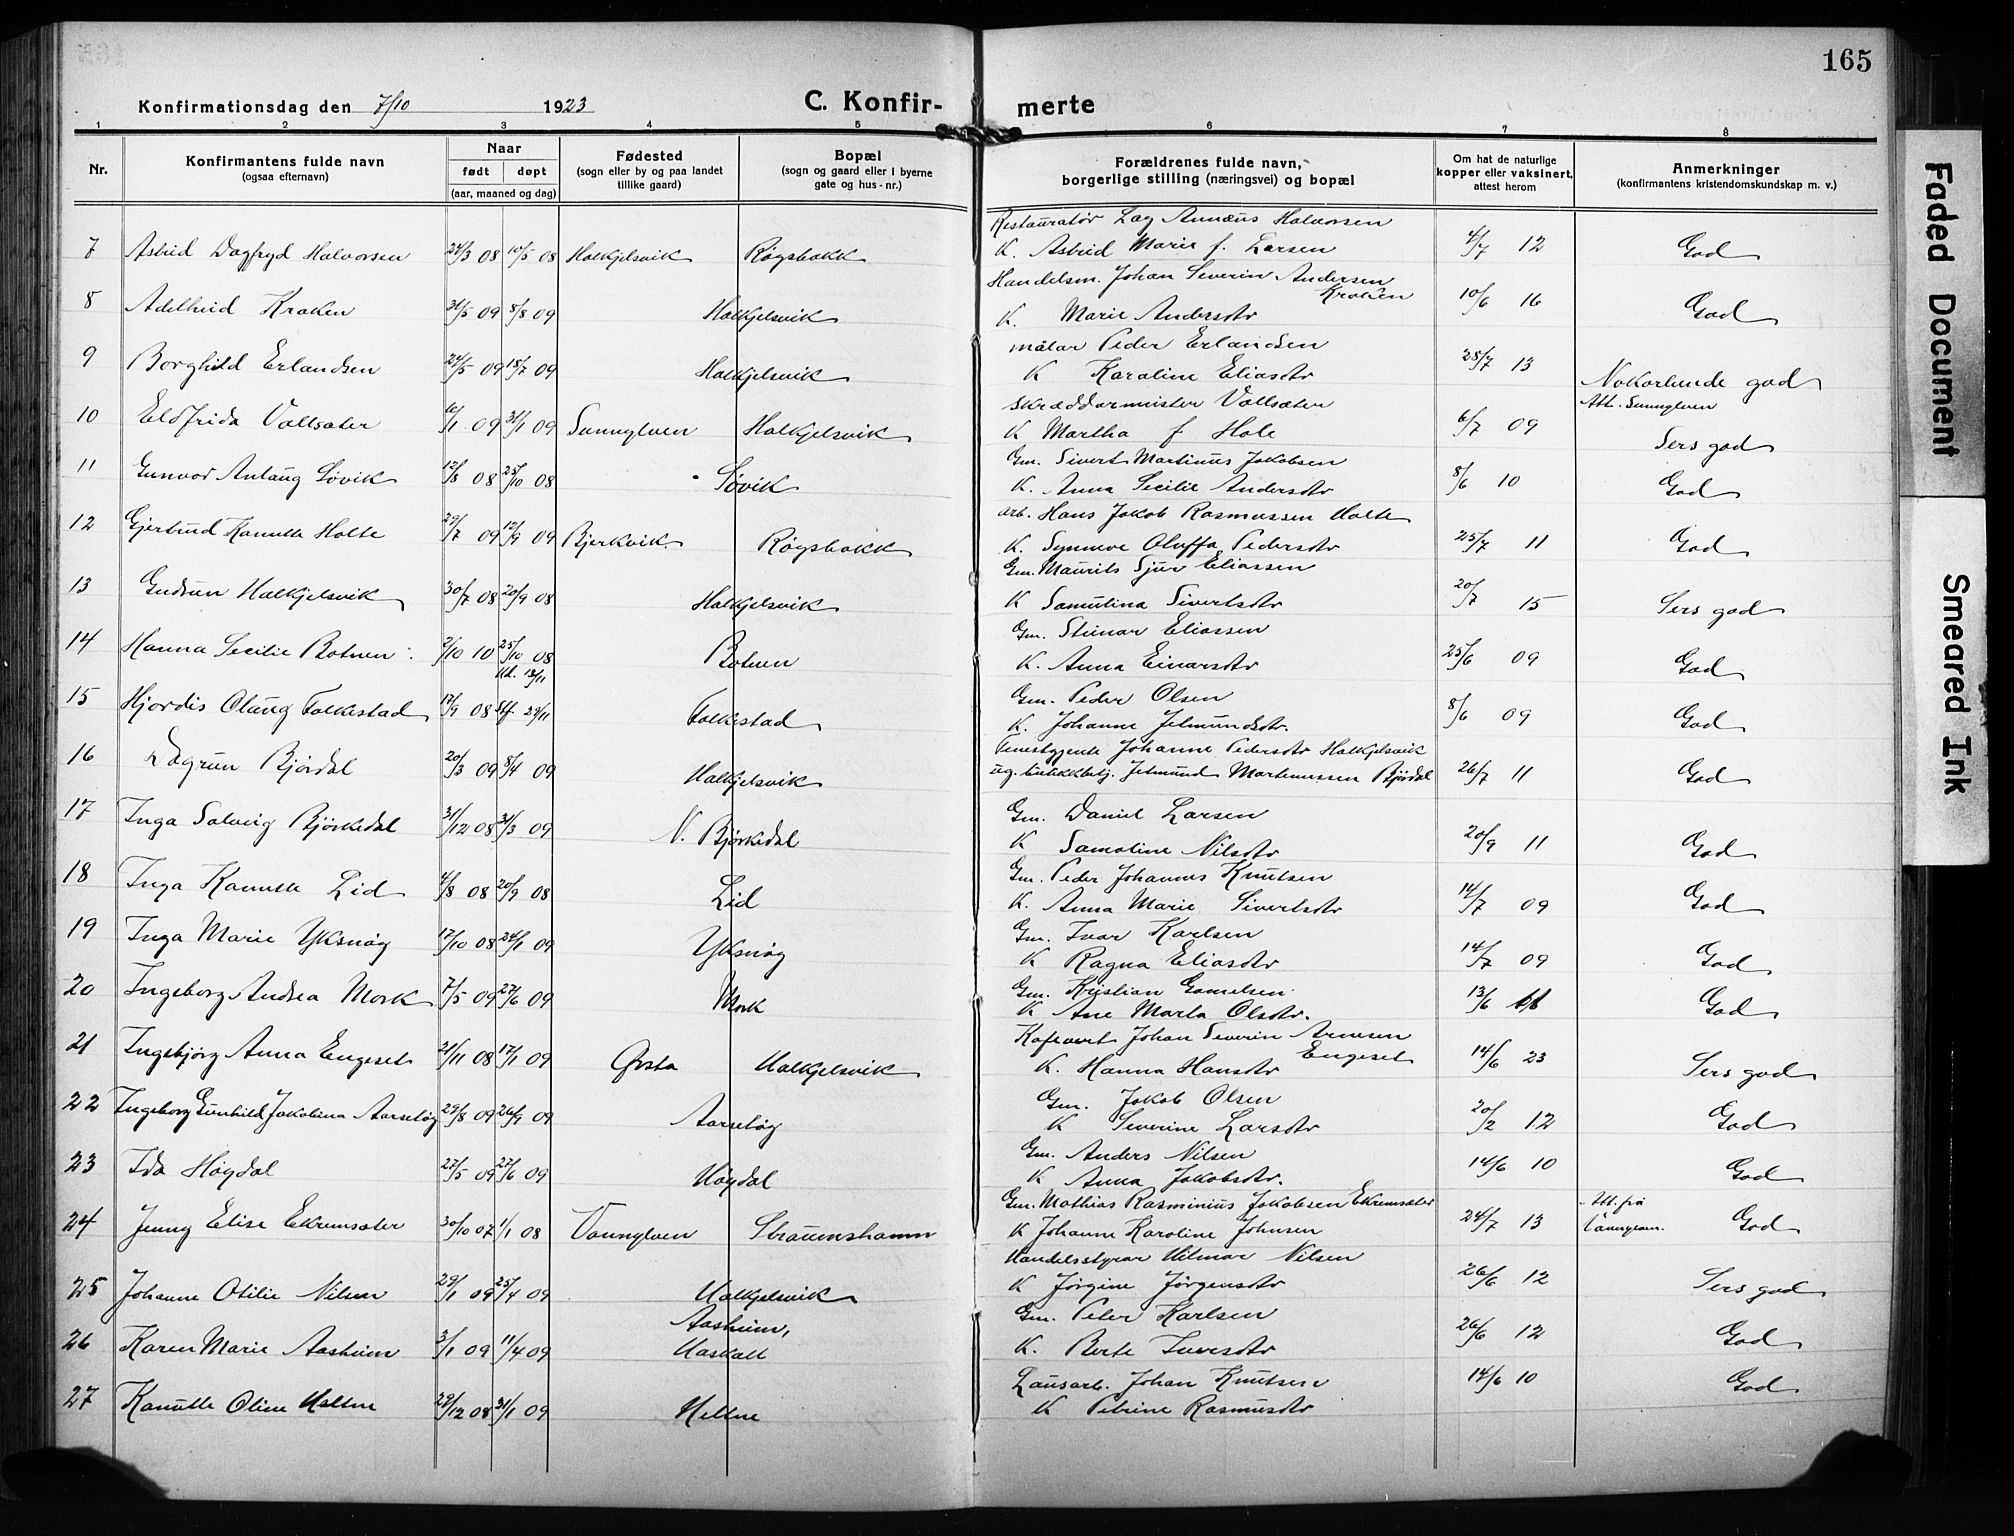 165
Konfirmationsdag den 7/10 1923
C. Konfir- merte
1 2 3 4 5 6 7 8
Nr.
Konfirmantens fulde navn
(ogsaa efternavn)
Naar
født døpt
(aar, maaned og dag)
Fødested
(sogn eller by og paa landet
tillike gaard)
Bopæl
(sogn og gaard eller i byerne
gate og hus-nr.)
Forældrenes fulde navn,
borgerlige stilling (næringsvei) og bopæl
Om hat de naturlige
kopper eller vaksinert,
attest herom
Anmerkninger
(konfirmantens kristendomskundskap m. v.)
Restauratør Lag Annæus Halvorsen
7 Astrid Dagfryd Halvorsen 24/3 08 10/5 08 Halkjelsvik Røgsbakk K. Astrid Marie f. Larsen 4/7 12 God
Handelsm. Johan Severin Andersen
Kraken
8 Adelheid Kraken 31/5 09 8/8 09 Halkjelsvik K. Marie Andersdtr 10/6 16 God
målar Peder Erlandsen
9 Borghild Erlandsen 24/5 09 18/7 09 Halkjelsvik K Karoline Eliasdtr 28/7 13 Nokorlunde god
Skræddarmeister Vollsæter
Att. Sunnylven
10 Eldfrida Vollsæter 10/1 09 31/1 09 Sunnylven Halkjelsvik K Martha f Hole 6/7 09 Sers god
Gm. Sivert Martinus Jakobsen
11 Gunvor Anlaug Søvik 12/8 08 25/10 08 Søvik K. Anna Secilie Andersdtr 8/6 10 God
arb. Hans Jakob Rasmussen Holte
12 Gjertrud Kanutte Holte 29/7 09 12/9 09 Bjerkvik Røgsbakk K. Synneve Oluffa Pedersdtr 25/7 11 God
Gm. Maurits Sjur Eliassen
13 Gudrun Halkjelsvik 30/7 08 20/9 08 Halkjelsvik K Samulina Sivertsdtr 20/7 15 Sers god
Gm. Steinar Eliassen
14 Hanna Secilie Botnen 2/10 10 25/10 08 Botnen K. Anna Einarsdtr 25/6 09 God
Gm. Peder Olsen
15 Hjordis Olaug Folkestad 17/9 08 Folkestad K. Johanne Jetmundsdtr. 8/6 09 God
Tenestgjente Johanne Pedersdtr Halkjelsvik
16 Dagrun Bjørdal 20/3 09 8/4 09 Halkjelsvik ug. butikkbetj. Jetmund Martinussen Bjørdal 26/7 11 God
Gm. Daniel Larsen
17 Inga Solveig Bjørkedal 31/12 08 31/3 09 N. Bjørkedal K Samoline Nilsdtr 20/9 11 God
Gm. Peder Johannes Knutsen
18 Inga Kanutte Lid 4/8 08 20/9 08 Lid K. Anna Marie Sivertsdtr 14/7 09 God
Gm. Ivar Karlsen
19 Inga Marie Yksnøy 17/10 08 24/1 09 Yksnøy K Ragna Eliasdtr 14/7 09 God
Gm. Kristian Gamelsen
20 Ingeborg Andrea Mork 7/5 09 27/6 09 Mork K Ane Marta Olsdtr. 13/6 11 God
Kafevert Johan Severin Arnesen
Engeset
21 Ingebjørg Anna Engeset 21/11 08 17/1 09 Ørsta Halkjelsvik K. Hanna Hansdtr 14/6 23 Sers god
Gm. Jakob Olsen
22 Ingeborg Gunhild Jakobina Aarsetøy 29/8 09 26/9 09 Aarsetøy K Severine Larsdtr 20/2 12 God
Gm. Anders Nilsen
23 Ida Høydal 27/5 09 27/6 09 Høydal K Anna Jakobsdtr. 14/6 10 God
Gm. Mathias Rasminius Jakobsen Ekremsæter
24 Jenny Elise Ekremsæter 30/10 07 1/1 08 Vannylven Straumshamn K Johanne Karoline Johnsen 24/7 13 Att. frå God
Handelsstyrar Hilmar Nilsen
25 Johanne Otilie Nilsen 29/1 09 25/4 09 Halkjelsvik K Jørgine Jørgensdtr 26/6 12 Sers god
Gm. Peter Karlsen
Aasheim,
26 Karen Marie Aasheim 3/1 09 11/4 09 Haskall K. Berte Iversdtr 26/6 12 God
Lausarb. Johan Knutsen
27 Kanutte Oline Heltne 29/12 08 31/1 09 Heltne K Petrine Rasmusdtr 14/6 10 God
Faded Document
Smeared Ink